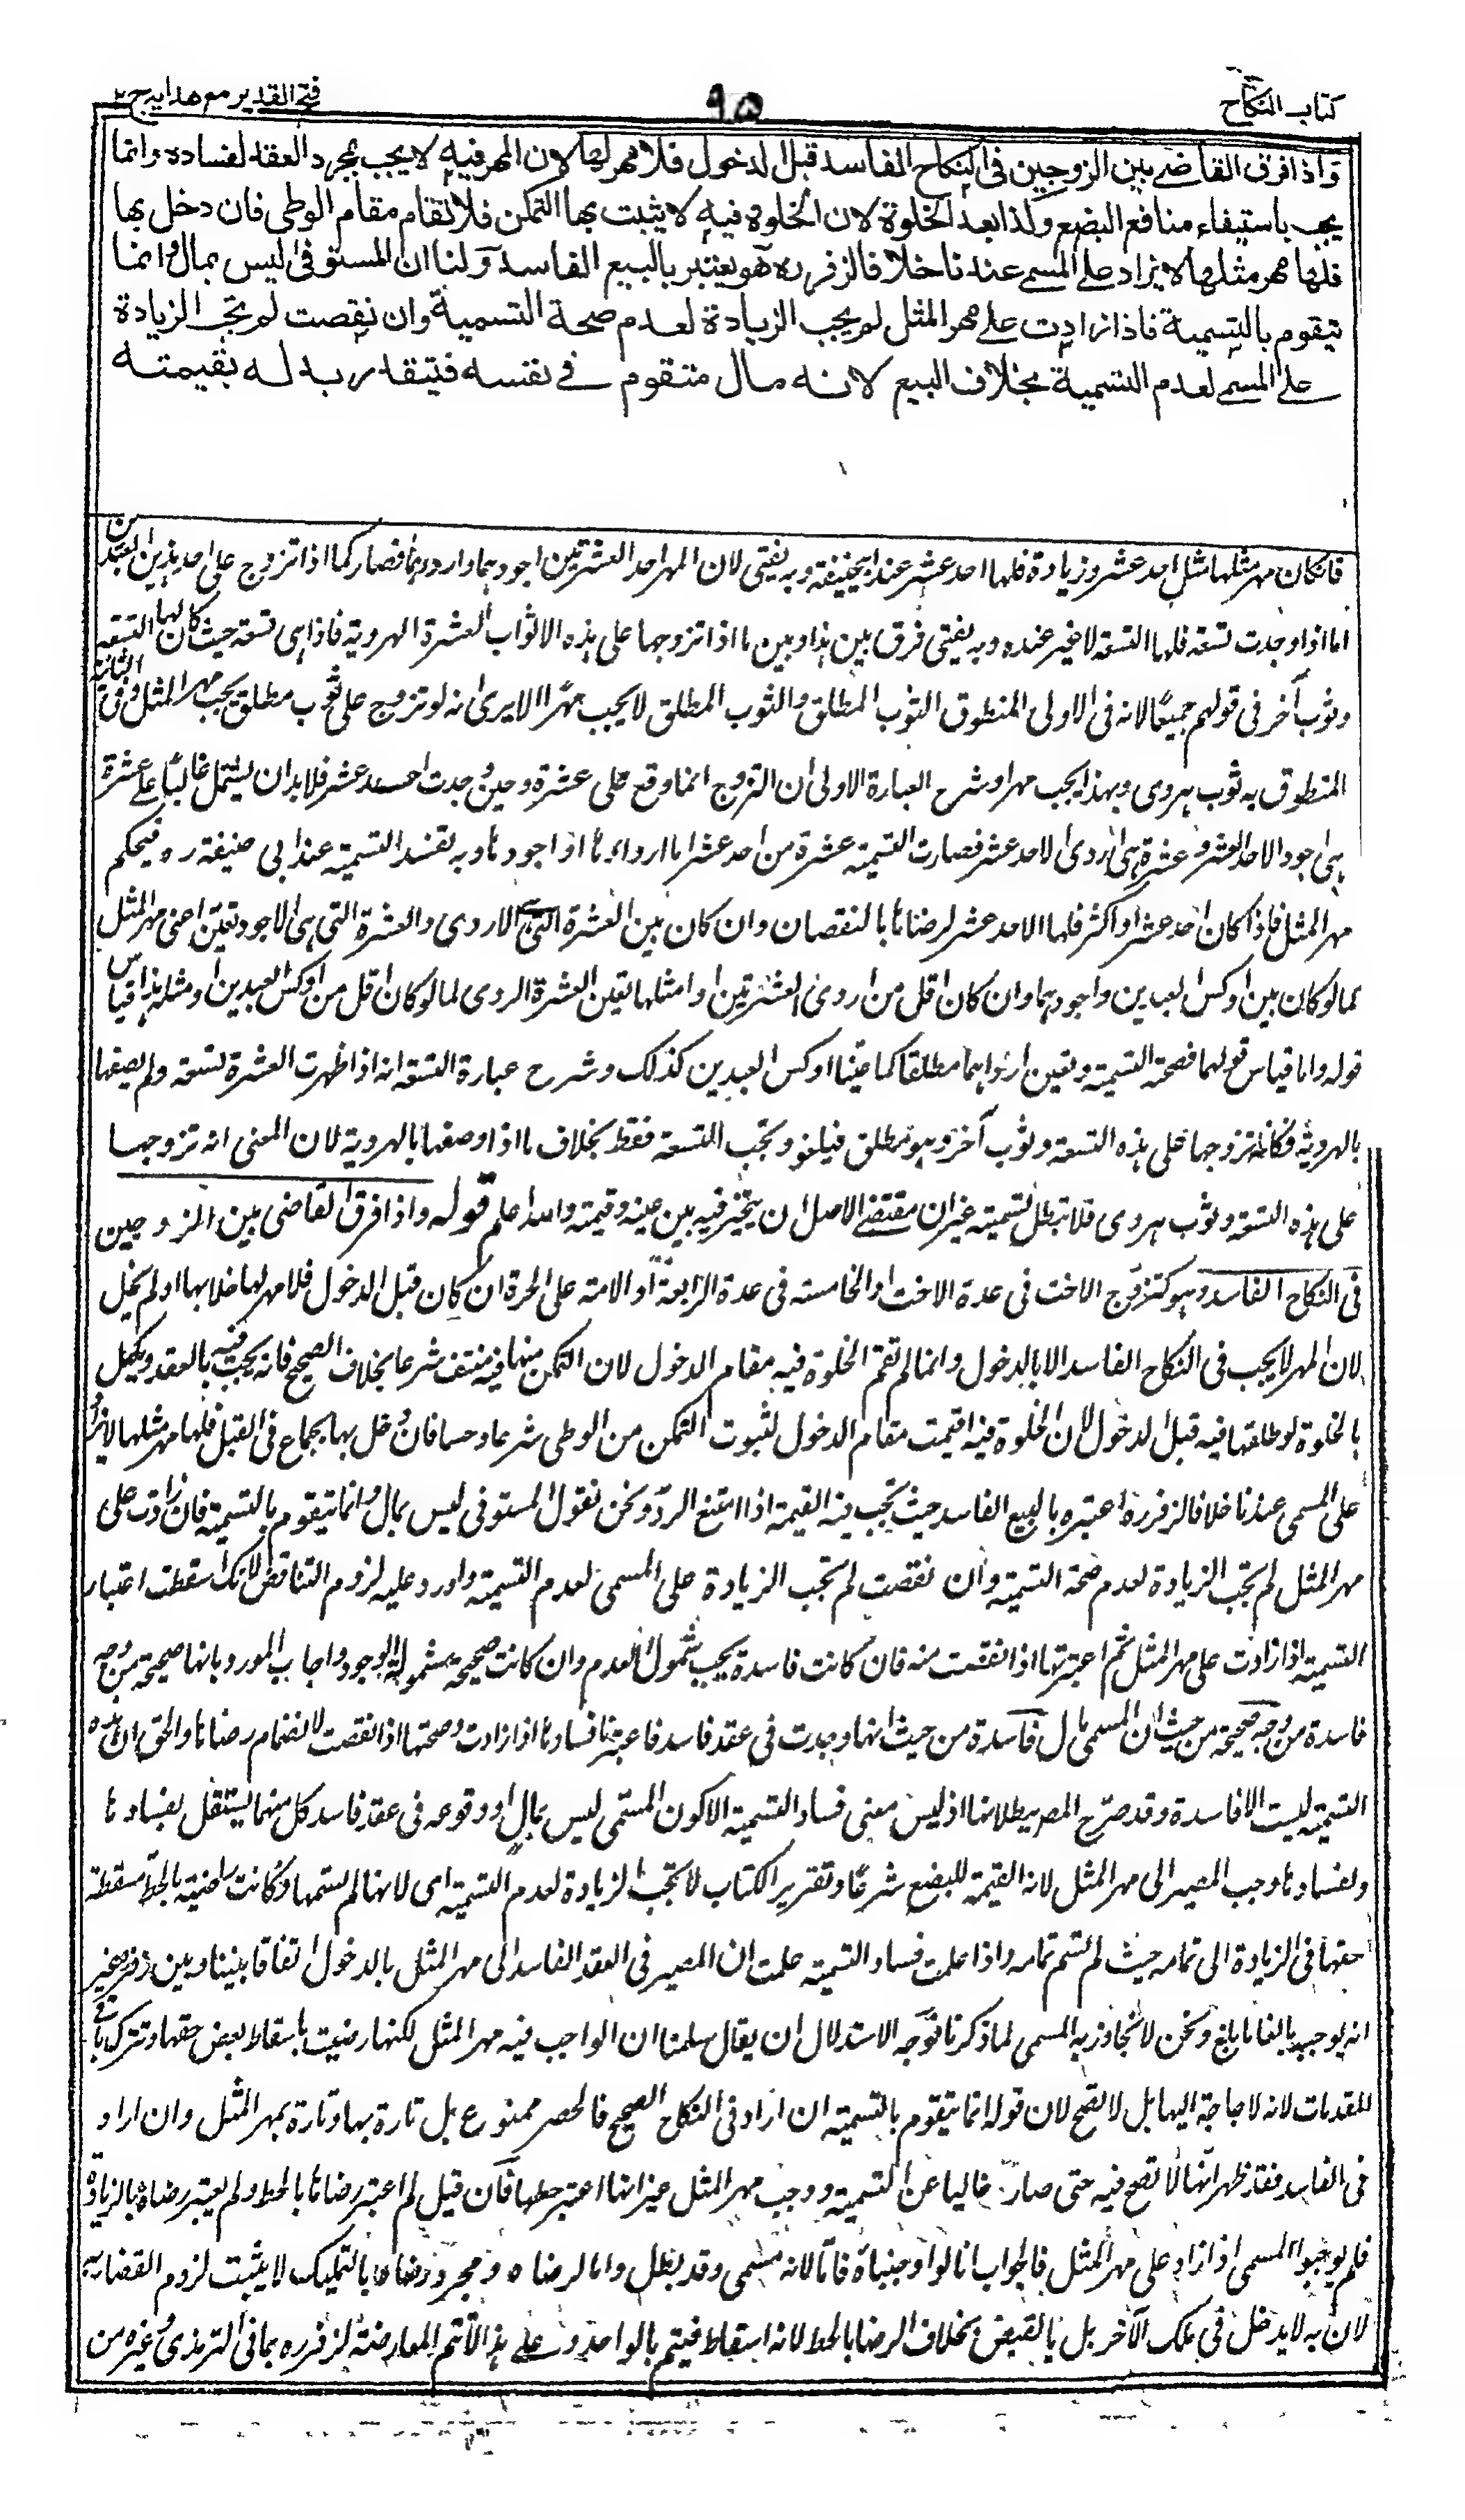 كتاب النكاح
٩٥
فتح القدير مع هدايه ج ٢
واذا فرق القاضے بين الزوجين فى النكاح الفاسد قبل الدخول فلا مهر لها لان المهر فيه لا يجب بمجرد العقد لفساده وانما
يجب باستيفاء منافع البضع وكذا بعد الخلوة لان الخلوة فيه لا يثبت بها التمكن فلا تقام مقام الوطى فان دخل بها
فلها مهر مثلها لا يزاد علے المسمے عندنا خلافا لزفر ره هو يعتبر بالبيع الفاسد ولنا ان المستوفى ليس بمال وانما
يتقوم بالتسمية فاذا زادت علے مهر المثل لم يجب الزيادة لعدم صحة التسمية وان نقصت لم تجب الزيادة
علے المسمے لعدم التسمية بخلاف البيع لانه مال متقوم فے نفسه فيتقدر بدله بقيمته
فان كان مهر مثلها مثل احد عشر وزيادة فلها احد عشر عند ابيحنيفة وبه يفتى لان المهر احد العشرتين اجودهما واردؤهما فصار كما اذا تزوج على احد هذين العبدين
اما اذا وجدت تسعة فلها التسعة لا غير عنده وبه يفتى فرق بين هذا وبين ما اذا تزوجها على هذه الاثواب العشرة الهروية فاذا هى تسعة حيث كان لها التسعة
وثوب آخر فى قولهم جميعًا لانه فى الاولى المنطوق الثوب المطلق والثوب المطلق لا يجب مهرًا الا يرى انه لو تزوج على ثوب مطلق يجب مهر المثل وفى الثانية
المنطوق به ثوب هروى وبهذا يجب مهرا وشرح العبارة الاولى ان التزوج انما وقع على عشرة وحين وجدت احد عشر فلا بد ان يشتمل غالبًا علے عشرة
هى اجود الاحد العشر وعشرة هى اردى الاحد عشر فصارت التسمية عشرة من احد عشر اما اردأها او اجودها وبه تفسد التسمية عند ابى حنيفة ره فيحكم
مهر المثل فاذا كان احد عشر او اكثر فلها الاحد عشر لرضاها بالنقصان وان كان بين العشرة التى هى الاردى والعشرة التى هى الاجود تعين اعنى مهر المثل
كما لو كان بين اوكس العبدين واجودهما وان كان اقل من اردى العشرتين او مثلها تعين العشرة الردى كما لو كان اقل من اوكس العبدين او مثله هذا قياس
قوله واما قياس قولهما فصحة التسمية وتعين اردأهما مطلقا كما عينا اوكس العبدين كذلك وشرح عبارة التسعة انه اذا ظهرت العشرة تسعة ولم يصفها
بالهروية فكانه تزوجها على هذه التسعة وثوب آخر وهو مطلق فيلغو وتجب التسعة فقط بخلاف ما اذا وصفها بالهروية لان المعنى انه تزوجها
على هذه التسعة وثوب هروى فلا تبطل تسميته غير ان مقتضے الاصل ان يتخير فيه بين عينه وقيمته والله اعلم قوله واذا فرق القاضى بين الزوجين
فى النكاح الفاسد وهو كتزوج الاخت فى عدة الاخت او الخامسة فى عدة الرابعة او الامة على الحرة ان كان قبل الدخول فلا مهر لها خلا بها او لم يخل
لان المهر لا يجب فى النكاح الفاسد الا بالدخول وانما لم تقم الخلوة فيه مقام الدخول لان التمكن منها فيه منتف شرعا بخلاف الصحيح فانه يجب فيه بالعقد ويكمل
بالخلوة لو طلقها فيه قبل الدخول لان الخلوة فيه اقيمت مقام الدخول لثبوت التمكن من الوطى شرعا وحسا فان دخل بها بجماع فى القبل فلها مهر مثلها لا يزاد
على المسمى عندنا خلافا لزفر ره اعتبره بالبيع الفاسد حيث تجب فيه القيمة اذا امتنع الرد ونحن نقول المستوفى ليس بمال وانما يتقوم بالتسمية فان زادت على
مهر المثل لم تجب الزيادة لعدم صحة التسمية وان نقصت لم تجب الزيادة على المسمى لعدم التسمية واورد عليه لزوم التناقض لانك اسقطت اعتبار
التسمية اذا زادت على مهر المثل ثم اعتبرتها اذا نقصت منه فان كانت فاسدة يجب شمول العدم وان كانت صحيحة شمول الوجود واجاب المورد بانها صحيحة من وجه
فاسدة من وجه صحيحة من حيث ان المسمى مال فاسدة من حيث انها وجدت فى عقد فاسد فاعتبرنا فسادها اذا زادت وصحتها اذا نقصت لانضمام رضاها والحق ان هذه
التسمية ليست الا فاسدة وقد صرح المصر ببطلانها اذ ليس معنى فساد التسمية الا كون المسمى ليس بمال او وقوعه فى عقد فاسد كل منهما يستقل بفسادها
ولفسادها وجب المصير الى مهر المثل لانه القيمة للبضع شرعًا وتقرير الكتاب لا تجب الزيادة لعدم التسمية اى لانها لم تسمها وكانت راضية بالحط مسقطة
حقها فى الزيادة الى تمامه حيث لم تسم تمامه واذا علمت فساد التسمية علمت ان المصير فى العقد الفاسد الى مهر المثل بالدخول اتفاقا بيننا وبين زفر غير
انه يوجبه بالغا ما بلغ ونحن لا نجاوز به المسمى لما ذكرنا فوجه الاستدلال ان يقال سلمنا ان الواجب فيه مهر المثل لكنها رضيت باسقاط بعض حقها وتترك باقى
المقدمات لانه لا حاجة اليها بل لا تصح لان قوله انما يتقوم بالتسمية ان اراد فى النكاح الصحيح فالحصر ممنوع بل تارة بها وتارة بمهر المثل وان اراد
فى الفاسد فقد ظهر انها لا تصح فيه حتى صار خاليا عن التسمية ووجب مهر المثل غير انها اعتبر حطها فان قيل لم اعتبر رضاها بالحط ولم يعتبر رضاه بالزيادة
فلم يوجبوا المسمى اذا زاد على مهر المثل فالجواب انا لو اوجبناه فاما لانه مسمى وقد بطل واما لرضاه ومجرد رضاه بالتمليك لا يثبت لزوم القضاء به
لان به لا يدخل فى ملك الآخر بل بالقبض بخلاف الرضا بالحط لانه اسقاط فيتم بالواحد وعلے هذا لا تتم المعارضة لزفر ره بما فى الترمذى وغيره من